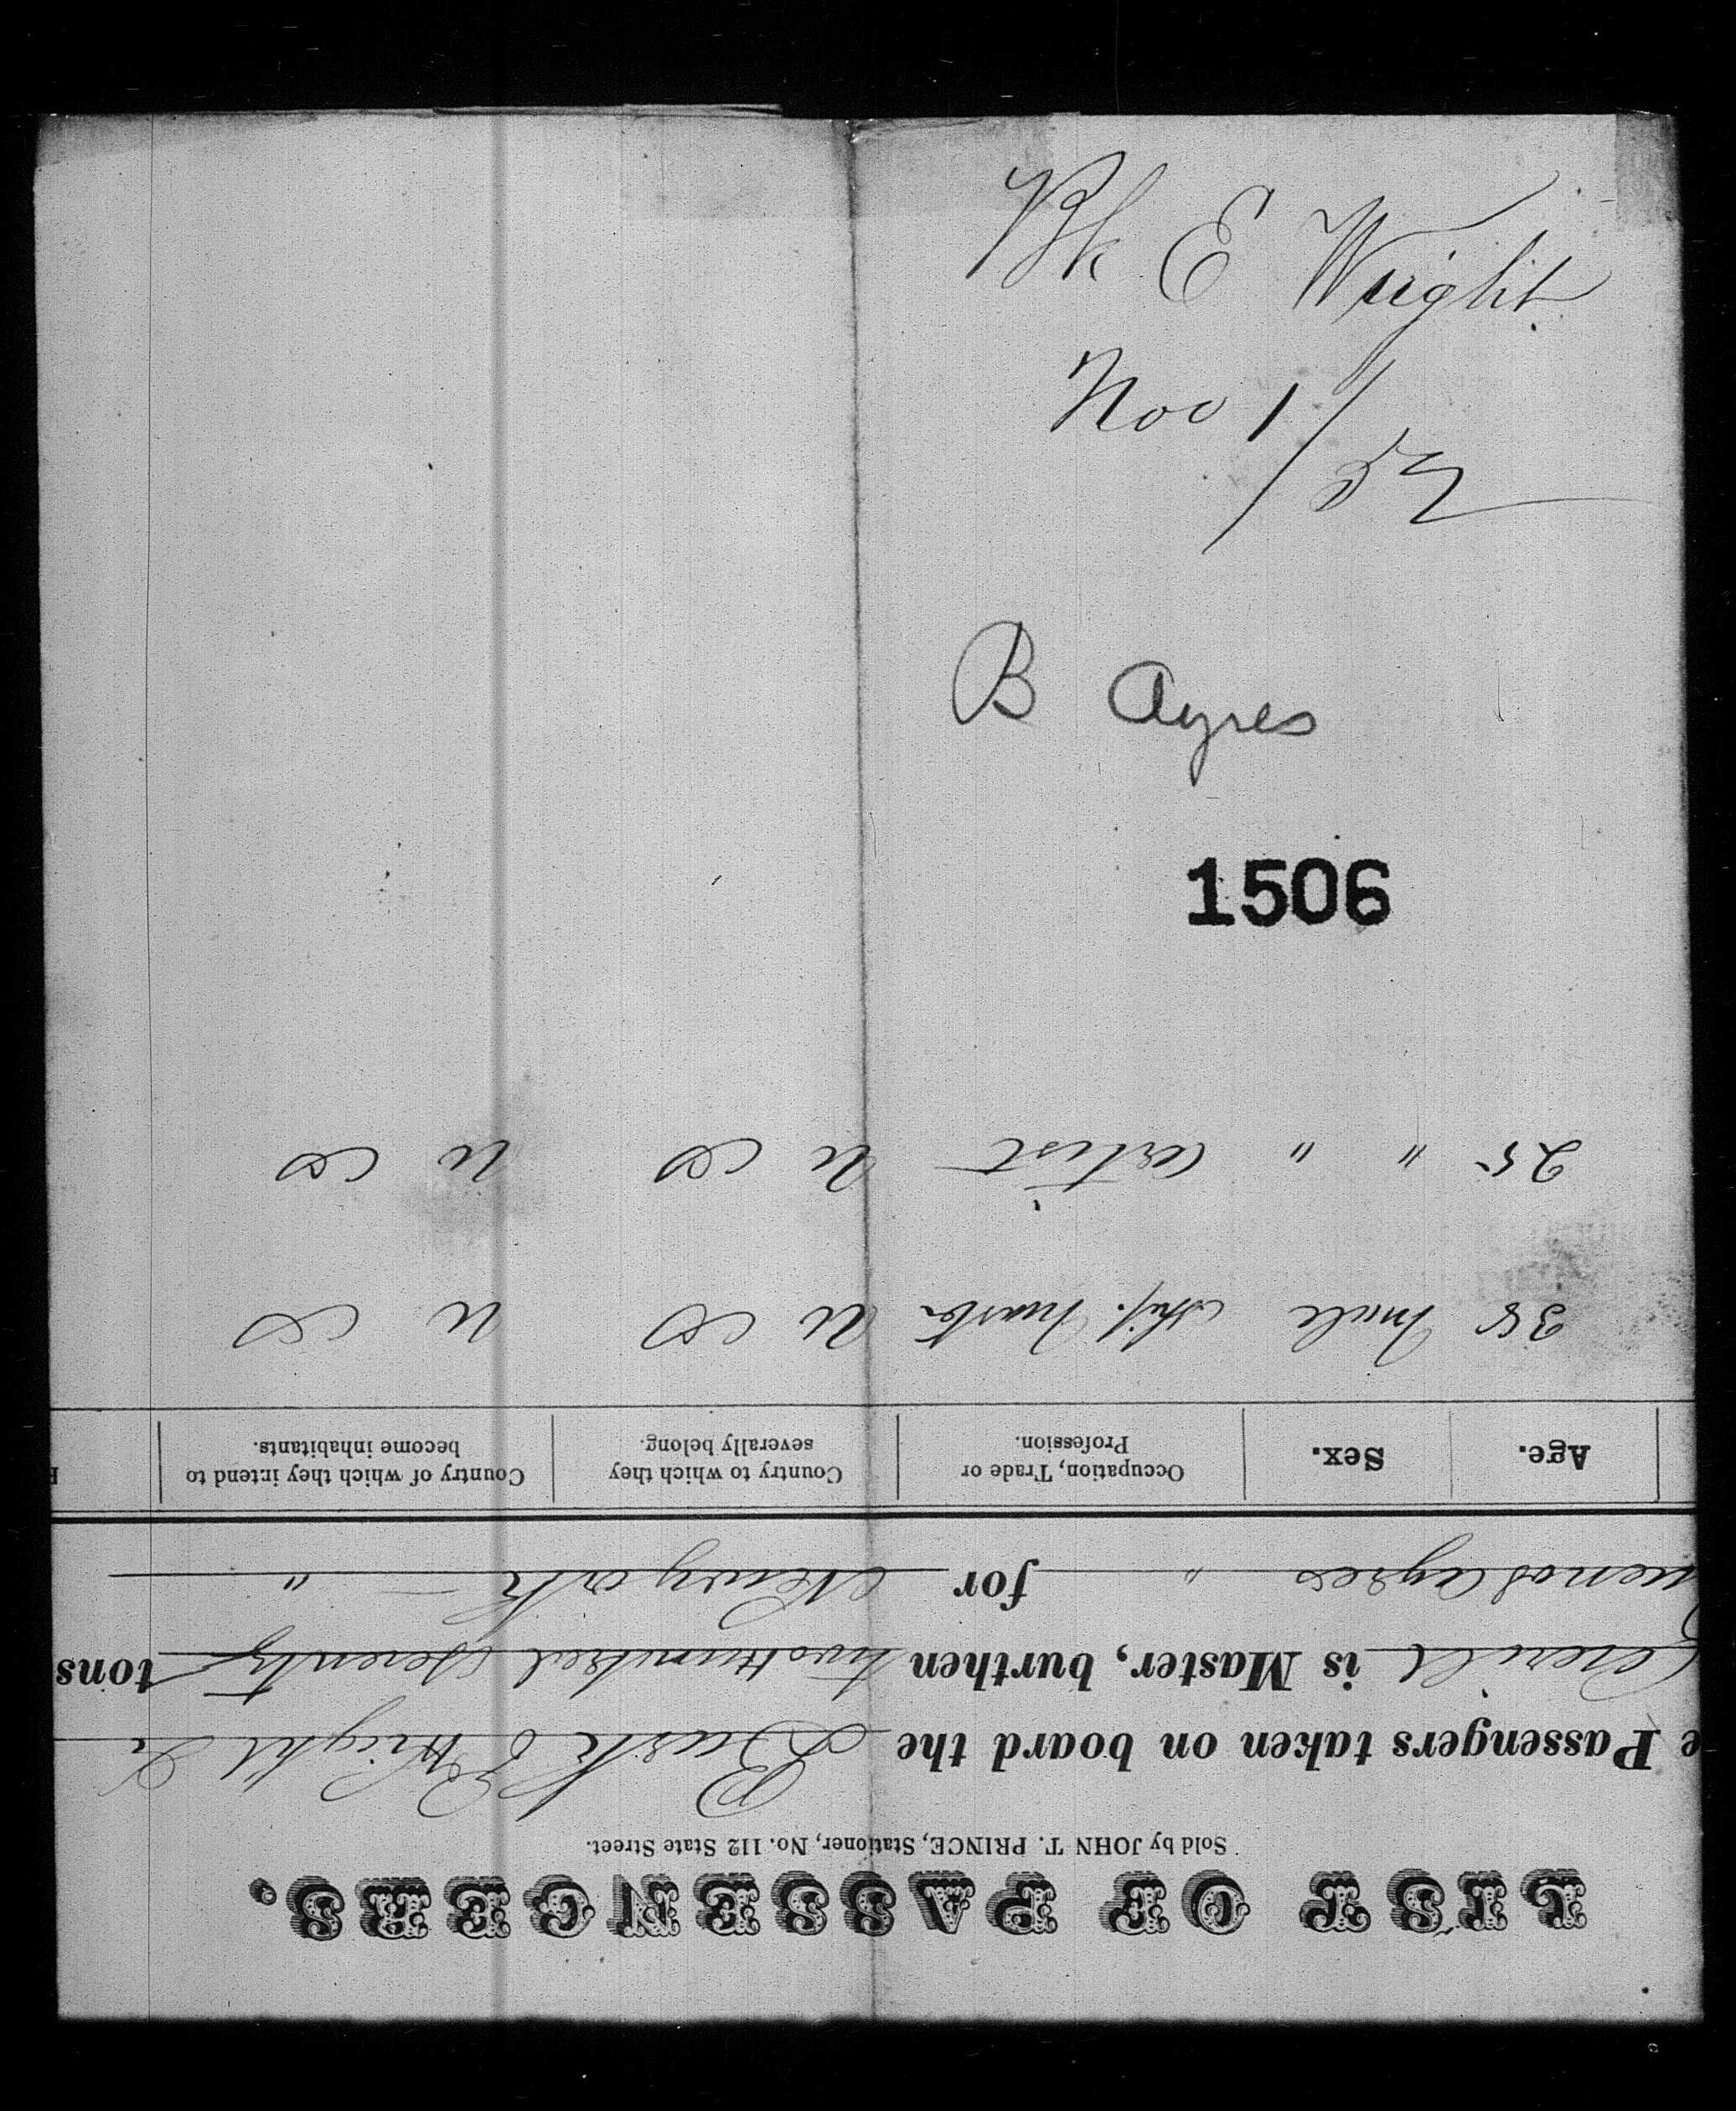 Bk E Wright
Nov 1/52
B Ayres
1506
LIST OF PASSENGERS.
Sold by JOHN T. PRINCE, Stationer, No. 112 State Street.
e Passengers taken on board the Bark E Wright Jr
is Master, burthen two Hundred Seventy tons
uenos Ayres " for New york "
Age. Sex. Occupation, Trade or Profession. Country to which they severally belong. Country of which they intend to become inhabitants.
38 Male Ship Master U S U S
25 " " Artist U S U S